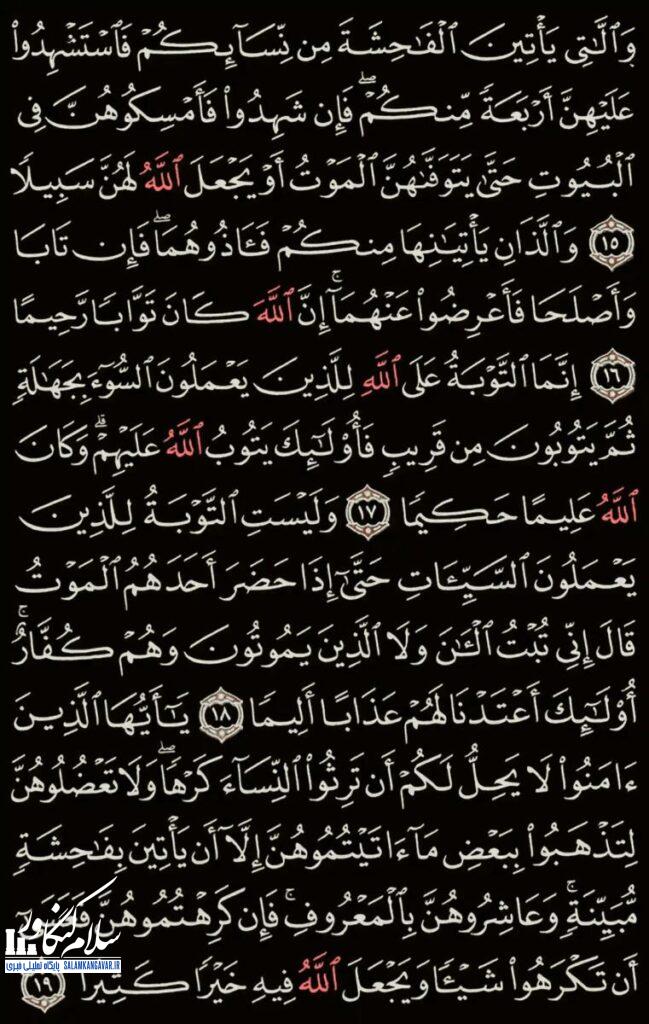 وَٱلَّٰتِى يَأۡتِينَ ٱلۡفَٰحِشَةَ مِن نِّسَآئِكُمۡ فَٱسۡتَشۡهِدُواْ
عَلَيۡهِنَّ أَرۡبَعَةٗ مِّنكُمۡۖ فَإِن شَهِدُواْ فَأَمۡسِكُوهُنَّ فِى
ٱلۡبُيُوتِ حَتَّىٰ يَتَوَفَّىٰهُنَّ ٱلۡمَوۡتُ أَوۡ يَجۡعَلَ ٱللَّهُ لَهُنَّ سَبِيلٗا
١٥ وَٱلَّذَانِ يَأۡتِيَٰنِهَا مِنكُمۡ فَـَٔاذُوهُمَاۖ فَإِن تَابَا
وَأَصۡلَحَا فَأَعۡرِضُواْ عَنۡهُمَآۚ إِنَّ ٱللَّهَ كَانَ تَوَّابٗا رَّحِيمًا
١٦ إِنَّمَا ٱلتَّوۡبَةُ عَلَى ٱللَّهِ لِلَّذِينَ يَعۡمَلُونَ ٱلسُّوٓءَ بِجَهَٰلَةٖ
ثُمَّ يَتُوبُونَ مِن قَرِيبٖ فَأُوْلَٰٓئِكَ يَتُوبُ ٱللَّهُ عَلَيۡهِمۡۗ وَكَانَ
ٱللَّهُ عَلِيمًا حَكِيمٗا ١٧ وَلَيۡسَتِ ٱلتَّوۡبَةُ لِلَّذِينَ
يَعۡمَلُونَ ٱلسَّيِّـَٔاتِ حَتَّىٰٓ إِذَا حَضَرَ أَحَدَهُمُ ٱلۡمَوۡتُ
قَالَ إِنِّى تُبۡتُ ٱلۡـَٰٔنَ وَلَا ٱلَّذِينَ يَمُوتُونَ وَهُمۡ كُفَّارٌۚ
أُوْلَٰٓئِكَ أَعۡتَدۡنَا لَهُمۡ عَذَابًا أَلِيمٗا ١٨ يَٰٓأَيُّهَا ٱلَّذِينَ
ءَامَنُواْ لَا يَحِلُّ لَكُمۡ أَن تَرِثُواْ ٱلنِّسَآءَ كَرۡهٗاۖ وَلَا تَعۡضُلُوهُنَّ
لِتَذۡهَبُواْ بِبَعۡضِ مَآ ءَاتَيۡتُمُوهُنَّ إِلَّآ أَن يَأۡتِينَ بِفَٰحِشَةٖ
مُّبَيِّنَةٖۚ وَعَاشِرُوهُنَّ بِٱلۡمَعۡرُوفِۚ فَإِن كَرِهۡتُمُوهُنَّ فَعَسَىٰٓ
أَن تَكۡرَهُواْ شَيۡـٔٗا وَيَجۡعَلَ ٱللَّهُ فِيهِ خَيۡرٗا كَثِيرٗا ١٩
سلام کنگاور
پایگاه تحلیلی خبری SALAMKANGAVAR.IR